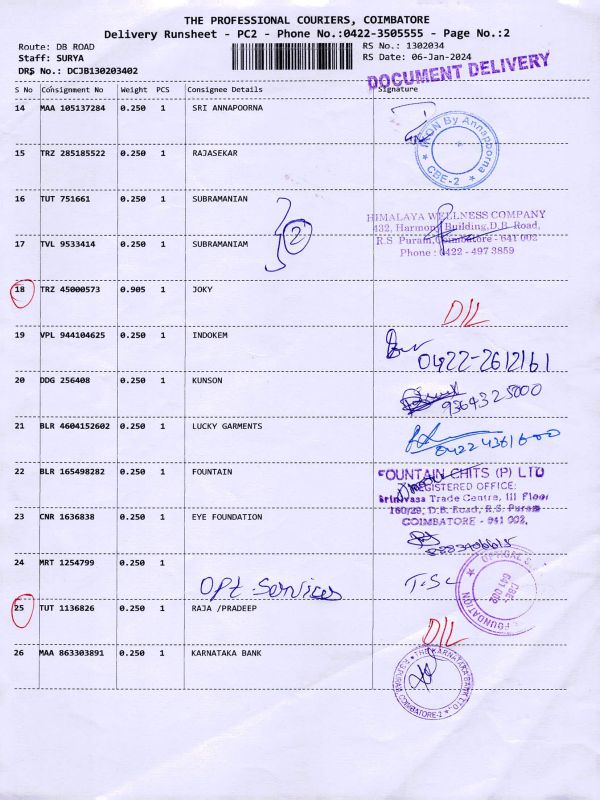 THE PROFESSIONAL COURIERS, COIMBATORE
Delivery Runsheet - PC2 - Phone No.:0422-3505555 - Page No.:2
Route: DB ROAD
Staff: SURYA
DRS No.: DCJB130203402
RS No.: 1302034
RS Date: 06-Jan-2024
DOCUMENT DELIVERY
S No Consignment No Weight PCS Consignee Details Signature
14 MAA 105137284 0.250 1 SRI ANNAPOORNA
IKON By Annapoorna
* CBE-2 *
15 TRZ 285185522 0.250 1 RAJASEKAR
16 TUT 751661 0.250 1 SUBRAMANIAN
2
HIMALAYA WELLNESS COMPANY
432, Harmony Building,D.B. Road,
R.S Puram,Coimbatore - 641 002
Phone : 0422 - 497 3859
17 TVL 9533414 0.250 1 SUBRAMANIAM
18 TRZ 45000573 0.905 1 JOKY
D/L
19 VPL 944104625 0.250 1 INDOKEM
0422-2612161
20 DDG 256408 0.250 1 KUNSON
9364325000
21 BLR 4604152602 0.250 1 LUCKY GARMENTS
0422 4361600
22 BLR 165498282 0.250 1 FOUNTAIN
FOUNTAIN CHITS (P) LTD
REGISTERED OFFICE:
Srinivasa Trade Centre, III Floor
160/29, D.B. Road, R.S. Puram
COIMBATORE - 641 002.
23 CNR 1636838 0.250 1 EYE FOUNDATION
24 MRT 1254799 0.250 1
Opt. Services
OPTICAL S
CBE
641 002
FOUNDATION
25 TUT 1136826 0.250 1 RAJA /PRADEEP
D/L
26 MAA 863303891 0.250 1 KARNATAKA BANK
THE KARNATAKA BANK LTD
R.S.PURAM, COIMBATORE-2